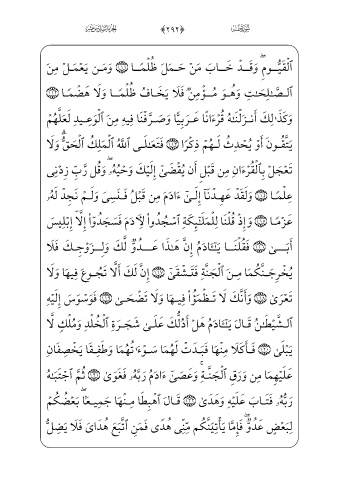 ﴿٢٩٢﴾
ٱلْقَيُّومِ ۖ وَقَدْ خَابَ مَنْ حَمَلَ ظُلْمًا ۝ وَمَن يَعْمَلْ مِنَ
ٱلصَّـٰلِحَـٰتِ وَهُوَ مُؤْمِنٌ فَلَا يَخَافُ ظُلْمًا وَلَا هَضْمًا ۝
وَكَذَٰلِكَ أَنزَلْنَـٰهُ قُرْءَانًا عَرَبِيًّا وَصَرَّفْنَا فِيهِ مِنَ ٱلْوَعِيدِ لَعَلَّهُمْ
يَتَّقُونَ أَوْ يُحْدِثُ لَهُمْ ذِكْرًا ۝ فَتَعَـٰلَى ٱللَّهُ ٱلْمَلِكُ ٱلْحَقُّ ۗ وَلَا
تَعْجَلْ بِٱلْقُرْءَانِ مِن قَبْلِ أَن يُقْضَىٰٓ إِلَيْكَ وَحْيُهُۥ ۖ وَقُل رَّبِّ زِدْنِى
عِلْمًا ۝ وَلَقَدْ عَهِدْنَآ إِلَىٰٓ ءَادَمَ مِن قَبْلُ فَنَسِىَ وَلَمْ نَجِدْ لَهُۥ
عَزْمًا ۝ وَإِذْ قُلْنَا لِلْمَلَـٰٓئِكَةِ ٱسْجُدُوا۟ لِـَٔادَمَ فَسَجَدُوٓا۟ إِلَّآ إِبْلِيسَ
أَبَىٰ ۝ فَقُلْنَا يَـٰٓـَٔادَمُ إِنَّ هَـٰذَا عَدُوٌّ لَّكَ وَلِزَوْجِكَ فَلَا
يُخْرِجَنَّكُمَا مِنَ ٱلْجَنَّةِ فَتَشْقَىٰٓ ۝ إِنَّ لَكَ أَلَّا تَجُوعَ فِيهَا وَلَا
تَعْرَىٰ ۝ وَأَنَّكَ لَا تَظْمَؤُا۟ فِيهَا وَلَا تَضْحَىٰ ۝ فَوَسْوَسَ إِلَيْهِ
ٱلشَّيْطَـٰنُ قَالَ يَـٰٓـَٔادَمُ هَلْ أَدُلُّكَ عَلَىٰ شَجَرَةِ ٱلْخُلْدِ وَمُلْكٍ لَّا
يَبْلَىٰ ۝ فَأَكَلَا مِنْهَا فَبَدَتْ لَهُمَا سَوْءَٰتُهُمَا وَطَفِقَا يَخْصِفَانِ
عَلَيْهِمَا مِن وَرَقِ ٱلْجَنَّةِ ۚ وَعَصَىٰٓ ءَادَمُ رَبَّهُۥ فَغَوَىٰ ۝ ثُمَّ ٱجْتَبَـٰهُ
رَبُّهُۥ فَتَابَ عَلَيْهِ وَهَدَىٰ ۝ قَالَ ٱهْبِطَا مِنْهَا جَمِيعًۢا ۖ بَعْضُكُمْ
لِبَعْضٍ عَدُوٌّ ۖ فَإِمَّا يَأْتِيَنَّكُم مِّنِّى هُدًى فَمَنِ ٱتَّبَعَ هُدَاىَ فَلَا يَضِلُّ